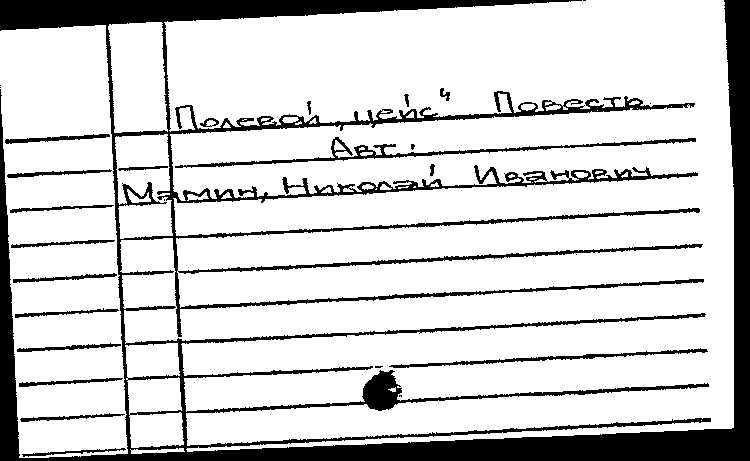 Полевой „цейс“ Повесть
Авт.:
Мамин, Николай Иванович